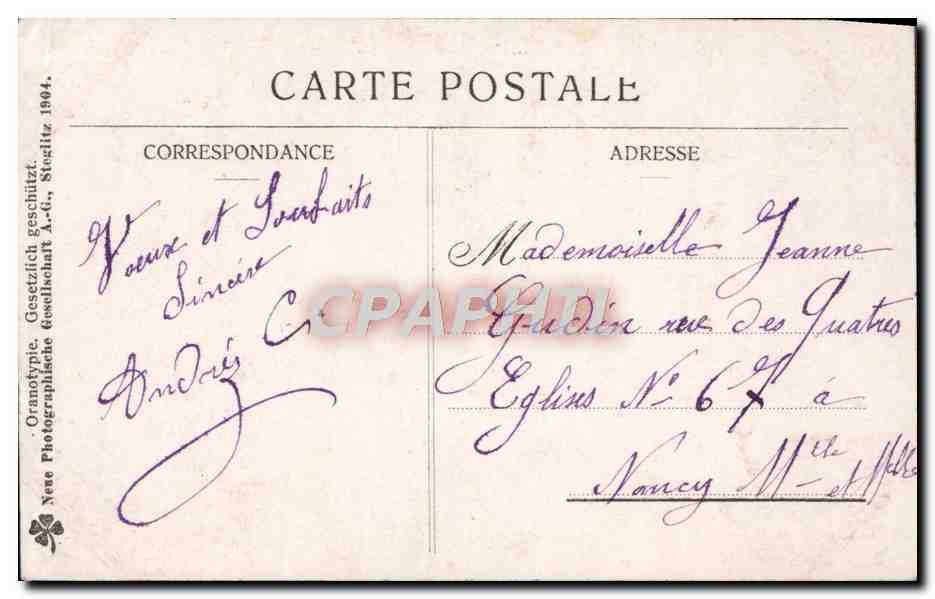 CARTE POSTALE
CORRESPONDANCE
Vœux et Souhaits
Sincère
André C.
ADRESSE
Mademoiselle Jeanne
Gudin rue des Quatres
Eglises N° 67 à
Nancy Mthe et Mlle
Oranotypie. Gesetzlich geschützt.
Neue Photographische Gesellschaft A.-G., Steglitz 1904.
CPAPHIL